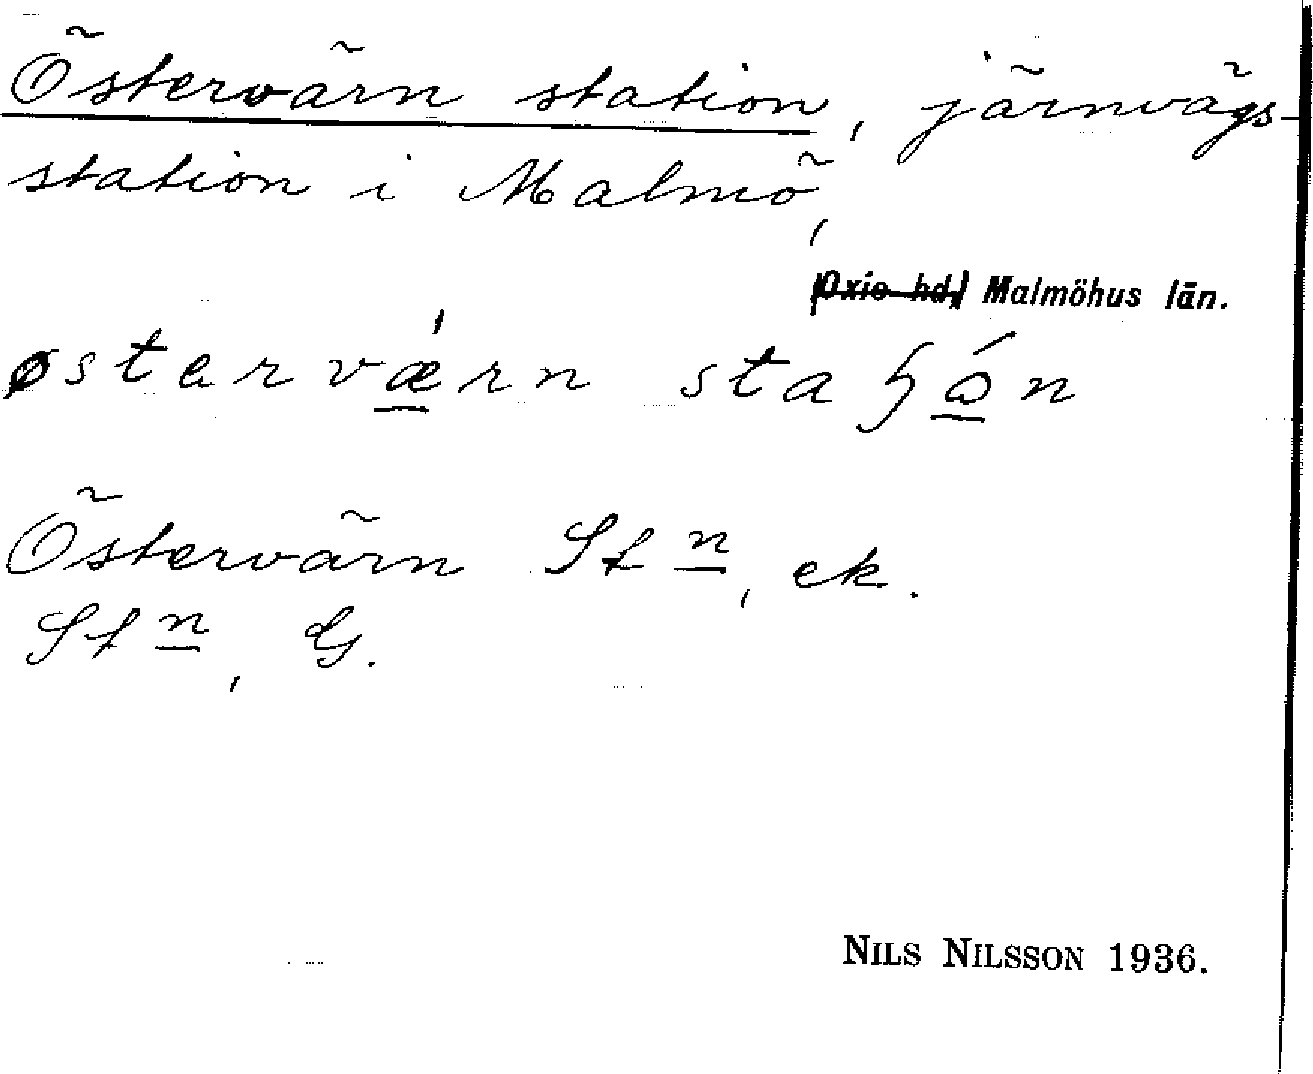 Östervärn station, järnvägs-
station i Malmö,
Oxie hd, Malmöhus län.
østervǽrn staɧón
Östervärn Stn, ek.
Stn, G.
NILS NILSSON 1936.